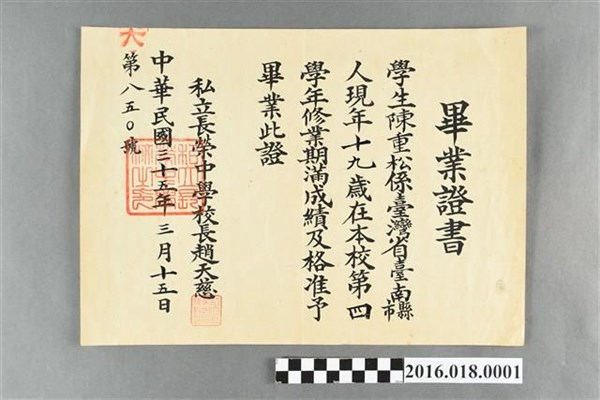 畢業證書
學生陳重松係臺灣省臺南縣市
人現年十九歲在本校第四
學年修業期滿成績及格准予
畢業此證
私立長榮中學校長趙天慈
中華民國三十五年三月十五日
第八五0號
2016.018.0001